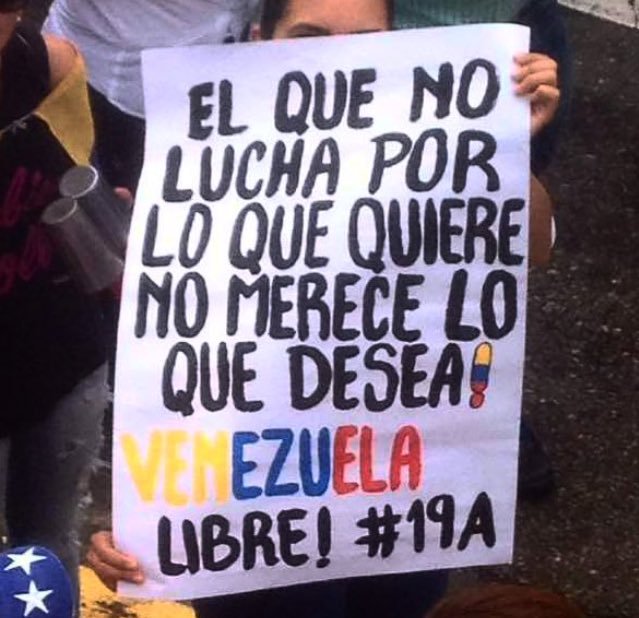 EL QUE NO
LUCHA POR
LO QUE QUIERE
NO MERECE LO
QUE DESEA!
VENEZUELA
LIBRE! #19A